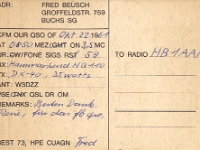 ADR: FRED BEUSCH
GROFFELDSTR. 759
BUCHS SG
CFM OUR QSO OF Okt. 22. 1961
AT 0850 MEZ/GMT ON 3,5 MC
UR CW/FONE SIGS RST 59
TO RADIO HB1AA
RX: Hammarlund HQ-110
TX: DX-40, 35 watts
ANT: W3DZZ
PSE/TNX QSL DR OM
REMARKS: Besten Dank,
für das fb qso,
BEST 73, HPE CUAGN Fred